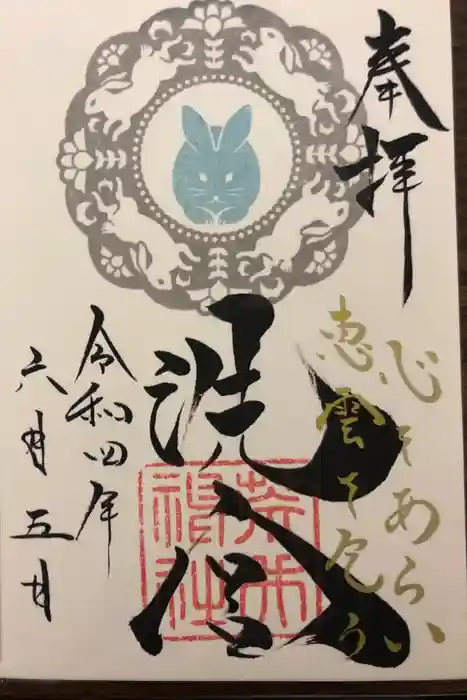 奉拝
心をあらい
恵雲を乞う
洗
神社
令和四年
六月五日